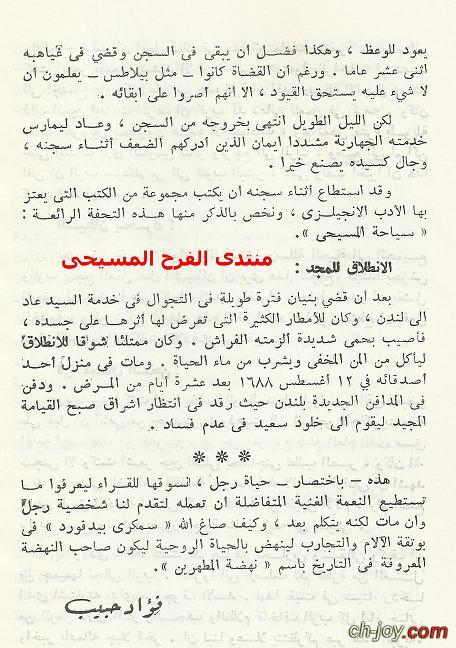 يعود للوعظ ، وهكذا فضل أن يبقى فى السجن وقضي فى غياهبه
اثنى عشر عاما . ورغم أن القضاة كانوا ــ مثل بيلاطس ــ يعلمون أن
لا شيء عليه يستحق القيود ، الا انهم أصروا على ابقائه .
لكن الليل الطويل انتهى بخروجه من السجن ، وعاد ليمارس
خدمته الجهارية مشددا ايمان الذين أدركهم الضعف أثناء سجنه ،
وجال كسيده يصنع خيرا .
وقد استطاع أثناء سجنه أن يكتب مجموعة من الكتب التى يعتز
بها الأدب الانجليزى ، ونخص بالذكر منها هذه التحفة الرائعة :
« سياحة المسيحى » .
الانطلاق للمجد :
منتدى الفرح المسيحى
بعد أن قضي بنيان فترة طويلة فى التجوال فى خدمة السيد عاد
الى لندن ، وكان للأمطار الكثيرة التى تعرض لها أثرها على جسده ،
فأصيب بحمى شديدة ألزمته الفراش . وكان ممتلئا شوقا للانطلاق
ليأكل من المن المخفى ويشرب من ماء الحياة . ومات فى منزل أحد
أصدقائه في ١٢ أغسطس ١٦٨٨ بعد عشرة أيام من المرض . ودفن
في المدافن الجديدة بلندن حيث رقد فى انتظار اشراق صبح القيامة
المجيد ليقوم الى خلود سعيد فى عدم فساد .
* * *
هذه – باختصار – حياة رجل ، أسوقها للقراء ليعرفوا ما
تستطيع النعمة الغنية المتفاضلة أن تعمله لتقدم لنا شخصية رجل
وان مات لكنه يتكلم بعد ، وكيف صاغ الله « سمكرى بيدفورد » فى
بوتقة الآلام والتجارب لينهض بالحياة الروحية ليكون صاحب النهضة
المعروفة فى التاريخ باسم « نهضة المطهرين » .
فؤاد حبيب
ch-joy.com